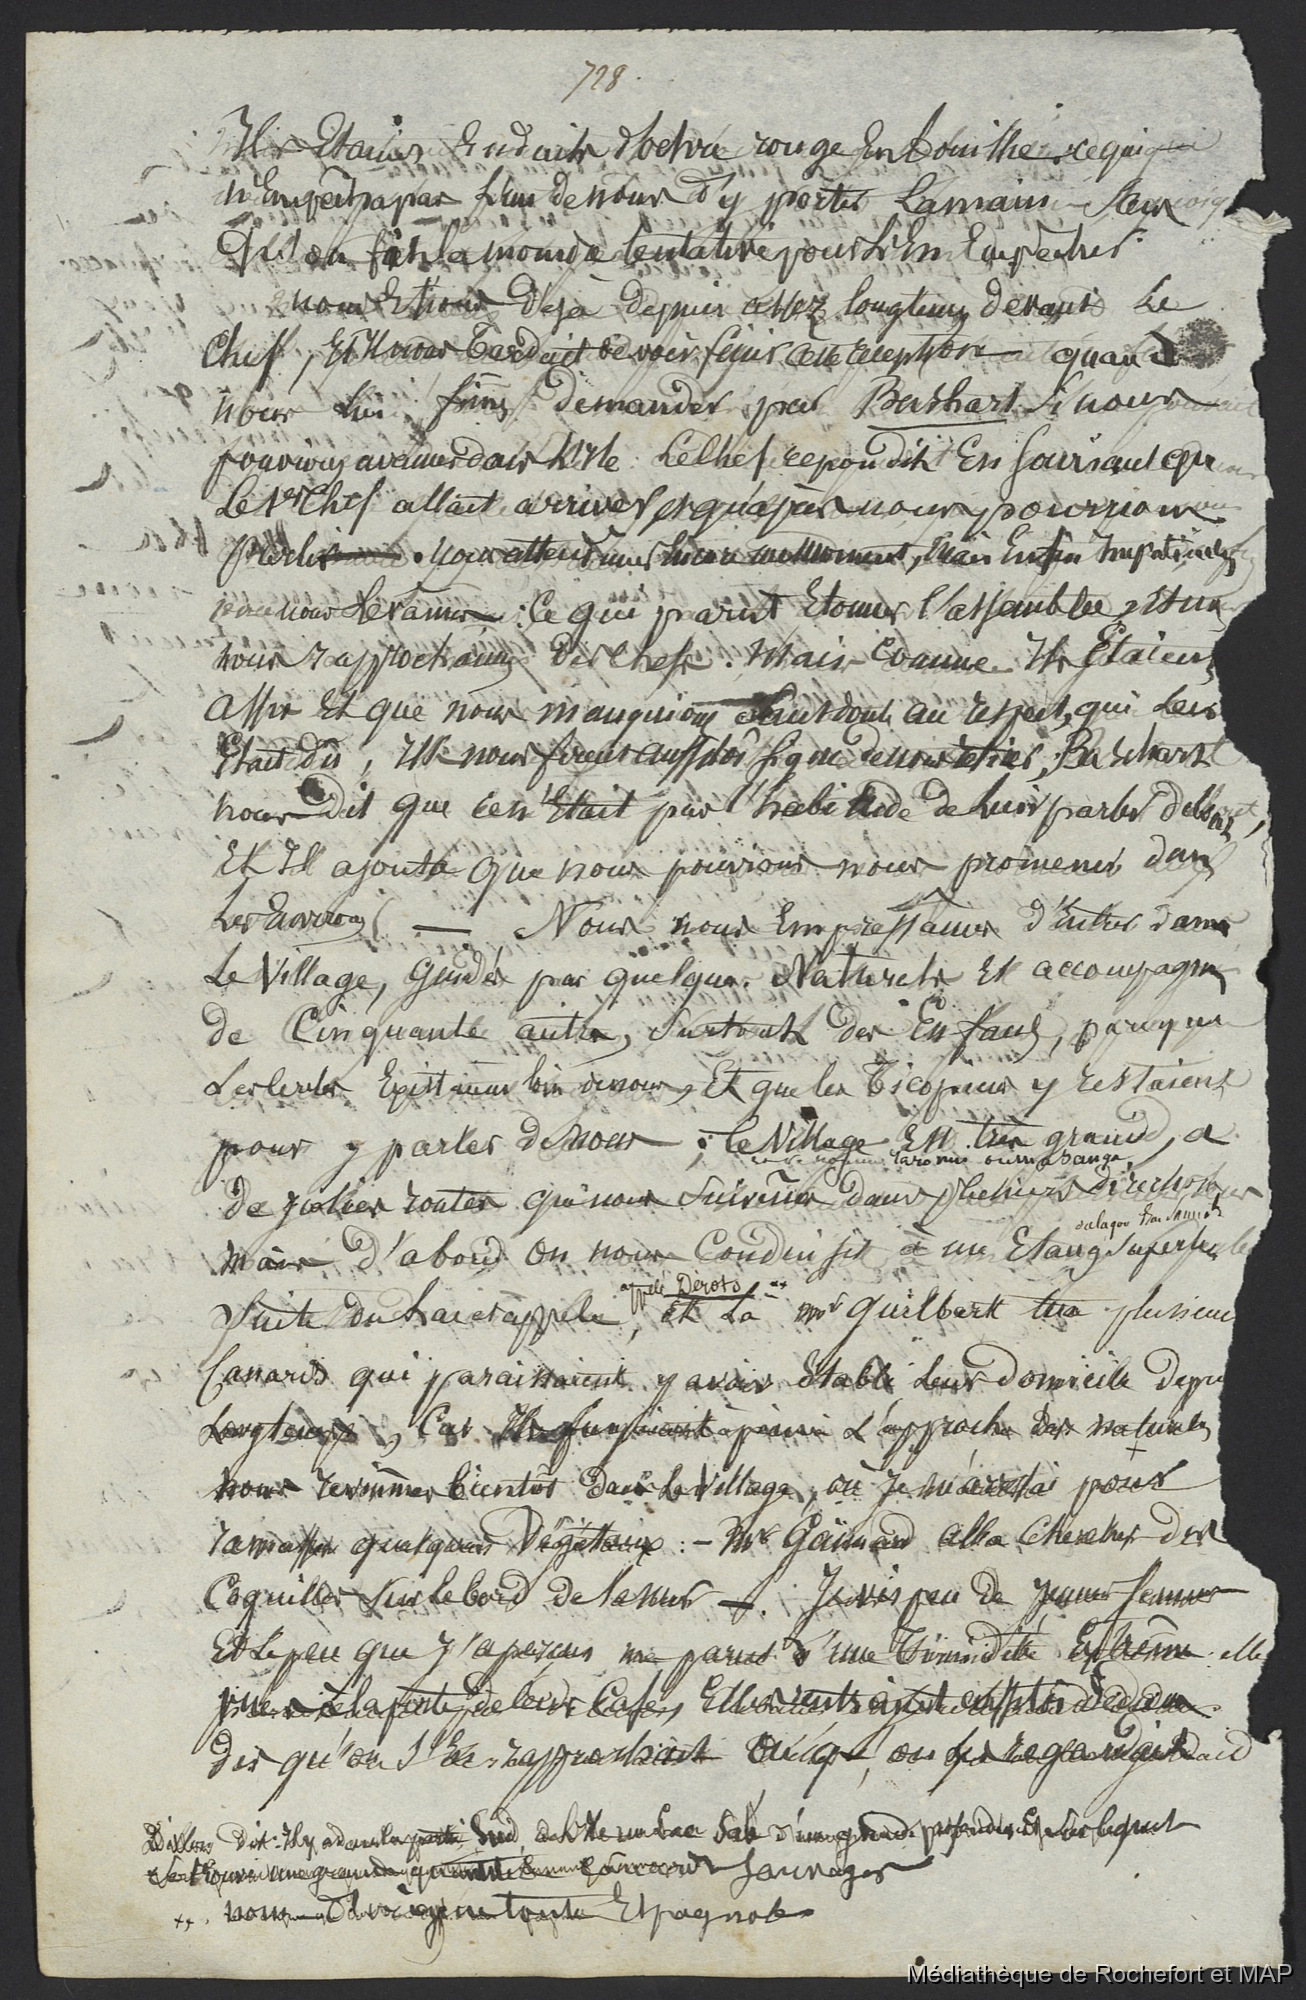 728.
Ils Etaient Enduits d'ochre rouge En bouillie, ce qui
n'Empecha pas l'un de nous d'y porter La main sans
qu'on fit la moindre tentative pour l'En Empecher.
nous Etions deja depuis assez longtems devant Le
Chef, Et Il nous tardait de voir finir cette reception quand
nous lui fimes demander par Bushart Si nous
pouvions avancer dans L'Ile. Le Chef repondit En souriant que
Le 1er Chef allait arriver, et qu'après nous pourrions
parler. nous attendimes Encore un moment, Mais Enfin Impatientés
nous nous Levames : Ce qui parut Etonner l'assemblée, Et
nous rapprochames des Chefs. Mais Comme Ils Etaient
assis Et que nous manquions sans doute au respect, qui Leur
Etait du, Ils nous firent aussitôt signe de nous retirer, Bushart
nous dit que ce n'Etait pas l'habitude de Leur parler debout,
Et Il ajouta que nous pouvions nous promener dans
Les Environs. — Nous nous Empressames d'Entrer dans
Le Village, Guidés par quelques Naturels Et accompagnés
de Cinquante autres, Surtout des Enfants, parce que
Les Chefs Etaient loin de nous, Et que les Ticopiens y restaient
pour y parler de nous ; le Village Est très grand, a
ou Maranga,
de jolies routes que nous suivimes dans plusieurs directions
mais d'abord On nous Conduisit à un Etang Superbe
appelé Deroto **
suite du Lac et appelé, Et La mr Guilbert tua plusieurs
Canards qui paraissaient y avoir Etabli Leur domicile depuis
Longtems, Car Ils fuyaient à peine L'approche des naturels
nous revinmes bientôt dans Le Village, où Je m'arretai pour
ramasser quelques Végétaux : - Mr Gaimard alla Chercher des
Coquilles Sur le bord de la mer —. Je vis peu de Jeunes femmes
Et le peu que J'aperçus me parut d'une timidité Extrême elles
à la porte de leurs Cases, Elles rentraient aussitôt dedans
dès qu'on s'En rapprochait Ou que on Les regardait
Dillon dit : Il y a dans la partie Sud de l'Ile un Lac Salé d'une grande profondeur Et Sur lequel
se trouve une grande quantité de Canards Sauvages
** nom d'origine toute Espagnole
Médiathèque de Rochefort et MAP